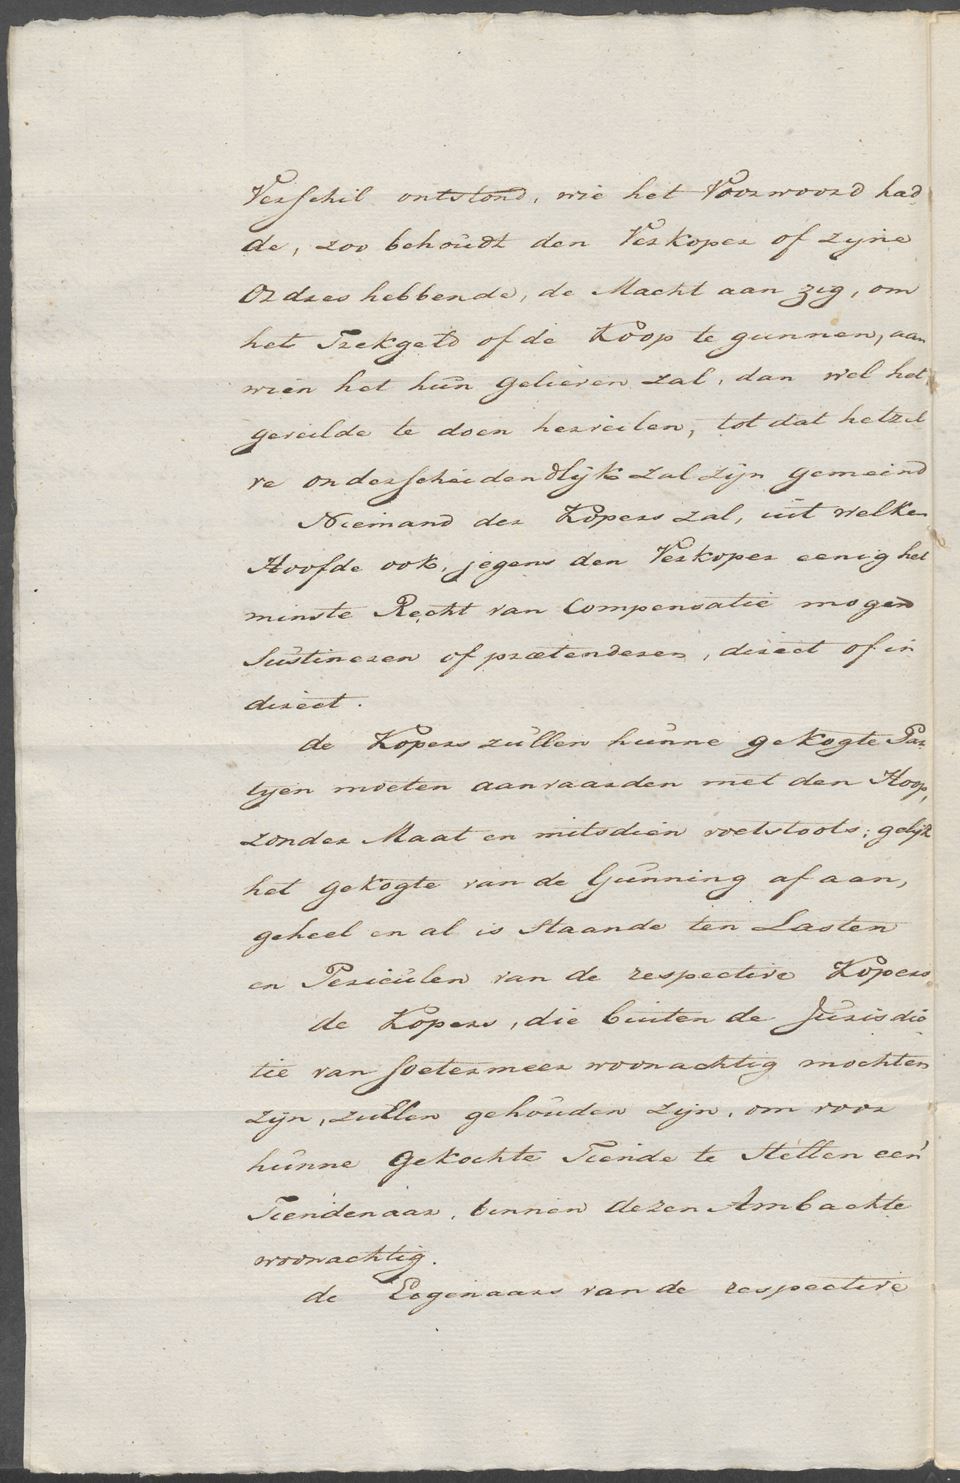 Verschil ontstond, wie het Voorwoord had
de, zoo behoudt den Verkoper of zyne
Ordres hebbende, de Macht aan zig, om
het Trekgeld of de Koop te gunnen, aan
wien het hun gelieven zal, dan wel het
geveilde te doen herveilen, tot dat hetzel
ve onderscheidendlijk zal zijn gemeind
Niemand der Kopers zal, uit welken
Hoofde ook, jegens den Verkoper eenig het
minste Recht van Compensatie mogen
Sustineren of prætenderen, direct of in
direct.
de Kopers zullen hunne gekogte Par
tyen moeten aanvaarden met den Hoop,
zonder Maat en mitsdien voetstoots; gelijk
het gekogte van de Gunning af aan,
geheel en al is Staande ten Lasten
en Periculen van de respective Kopers
de Kopers, die buiten de Jurisdic
tie van Soetermeer woonachtig mochten
zyn, zullen gehouden zijn, om voor
hunne gekochte Tiende te Stellen een
Tiendenaar, binnen dezen Ambachte
woonachtig.
de Eigenaars van de respective